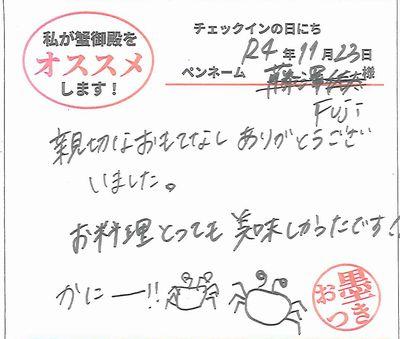 私が蟹御殿を
オススメ
します!
チェックインの日にち
R4年11月23日
ペンネーム
様
Fuji
親切なおもてなしありがとうござい
いました。
お料理とっても美味しかったです!
かにー!!
お墨つき